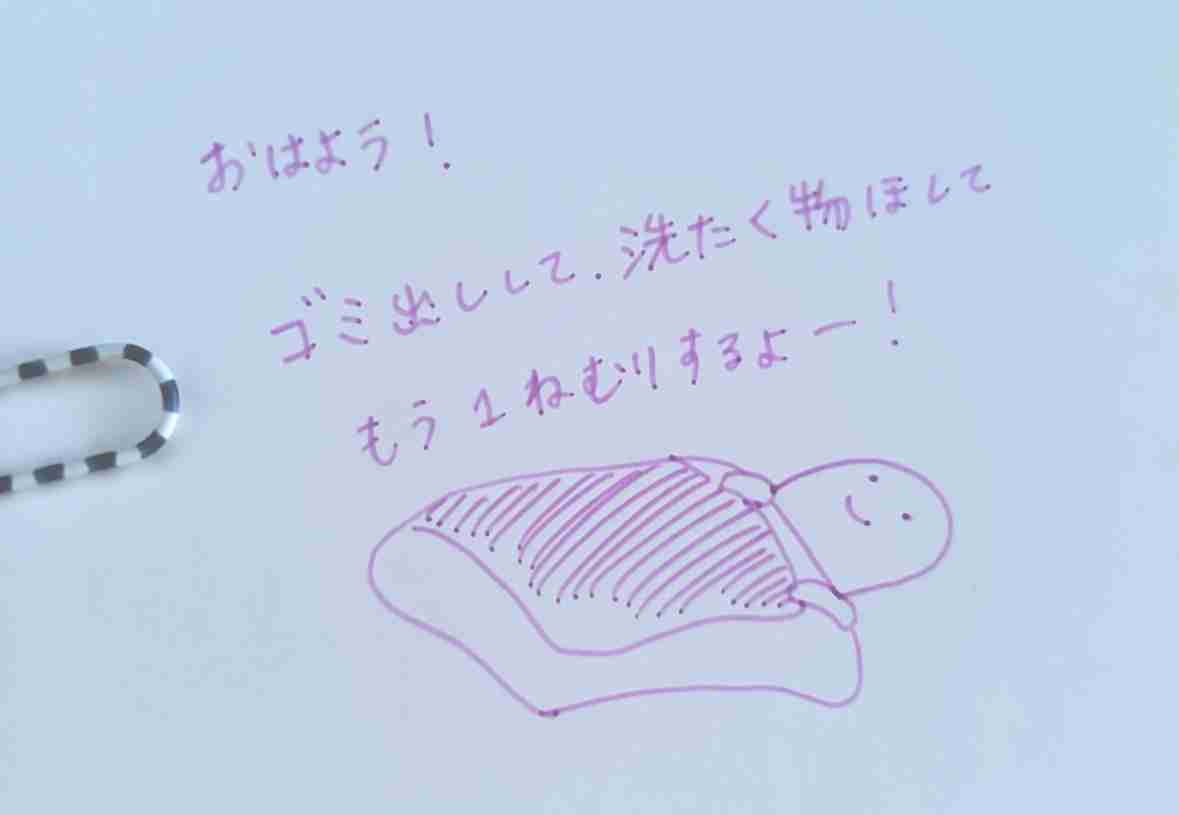 おはよう！
ゴミ出しして.洗たく物ほして
もう1ねむりするよー！